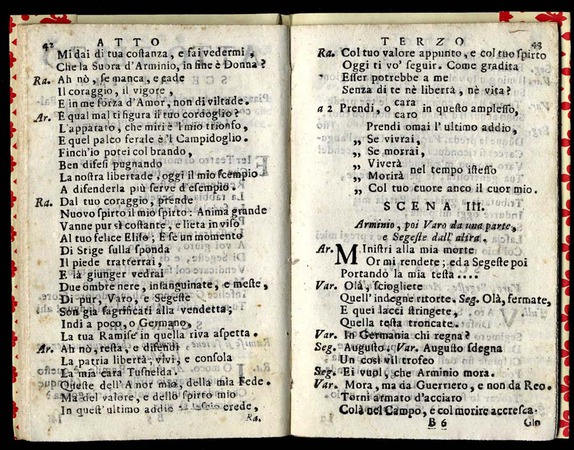 42 ATTO
Mi dai di tua costanza, e fai vedermi,
Che la Suora d'Arminio, in fine è Donna?
Ra. Ah nò, se manca, e cade
Il coraggio, il vigore,
E in me forza d'Amor, non di viltade.
Ar. E qual mai ti figura il tuo cordoglio?
L'apparato, che miri è 'l mio trionfo,
E quel palco ferale è 'l Campidoglio.
Finch'io potei col brando,
Ben difesi pugnando
La nostra libertade, oggi il mio scempio
A difenderla più serve d'esempio.
Ra. Dal tuo coraggio, prende
Nuovo spirto il mio spirto: Anima grande
Vanne pur sì costante, e lieta in viso
Al tuo felice Eliso; E se un momento
Di Stige sulla sponda
Il piede tratterrai,
E là giunger vedrai
Due ombre nere, insanguinate, e meste,
Di pur, Varo, e Segeste
Son già sagrificati alla vendetta;
Indi a poco, o Germano,
La tua Ramise in quella riva aspetta.
Ar. Ah nò, resta, e difendi
La patria libertà; vivi, e consola
La mia cara Tusnelda.
Queste dell'Amor mio, della mia Fede.
Ma del valore, e dello spirto mio
In quest'ultimo addio ti lascio erede,
Ra.
TERZO 43
Ra. Col tuo valore appunto, e col tuo spirto
Oggi ti vo' seguir. Come gradita
Esser potrebbe a me
Senza di te nè libertà, nè vita?
cara
a 2 Prendi, o in questo amplesso,
caro
Prendi omai l'ultimo addio,
„ Se vivrai,
„ Se morrai,
„ Viverà
nel tempo istesso
„ Morirà
„ Col tuo cuore anco il cuor mio.
SCENA III.
Arminio, poi Varo da una parte,
e Segeste dall'altra.
Ar. Ministri alla mia morte
Or mi rendete; ed a Segeste poi
Portando la mia testa....
Var. Olà, sciogliete
Quell'indegne ritorte. Seg. Olà, fermate,
E quei lacci stringete,
Quella testa troncate.
Var. In Germania chi regna?
Seg. Augusto. Var. Augusto sdegna
Un così vil trofeo
Seg. Ei vuol, che Arminio mora.
Var. Mora, ma da Guerriero, e non da Reo.
Torni armato d'acciaro
Colà nel Campo, e col morire accresca
B 6 Glo